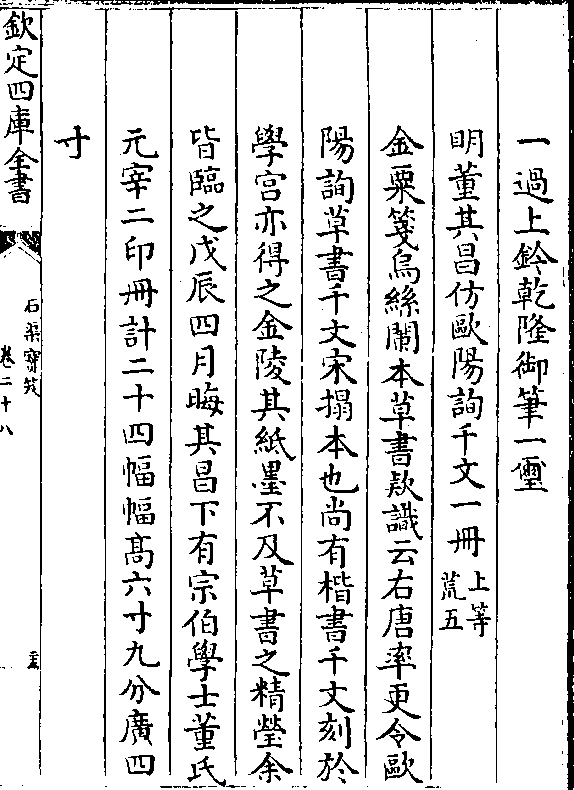 一過上鈐乾隆御筆一璽
明董其昌仿歐陽詢千文一冊上等荒五
金粟箋烏絲闌本草書款識云右唐率更令歐
陽詢草書千文宋搨本也尚有楷書千文刻於
學宮亦得之金陵其紙墨不及草書之精瑩余
皆臨之戊辰四月晦其昌下有宗伯學士董氏
元宰二印冊計二十四幅幅髙六寸九分廣四
寸
欽定四庫全書
石渠寳笈
卷二十八